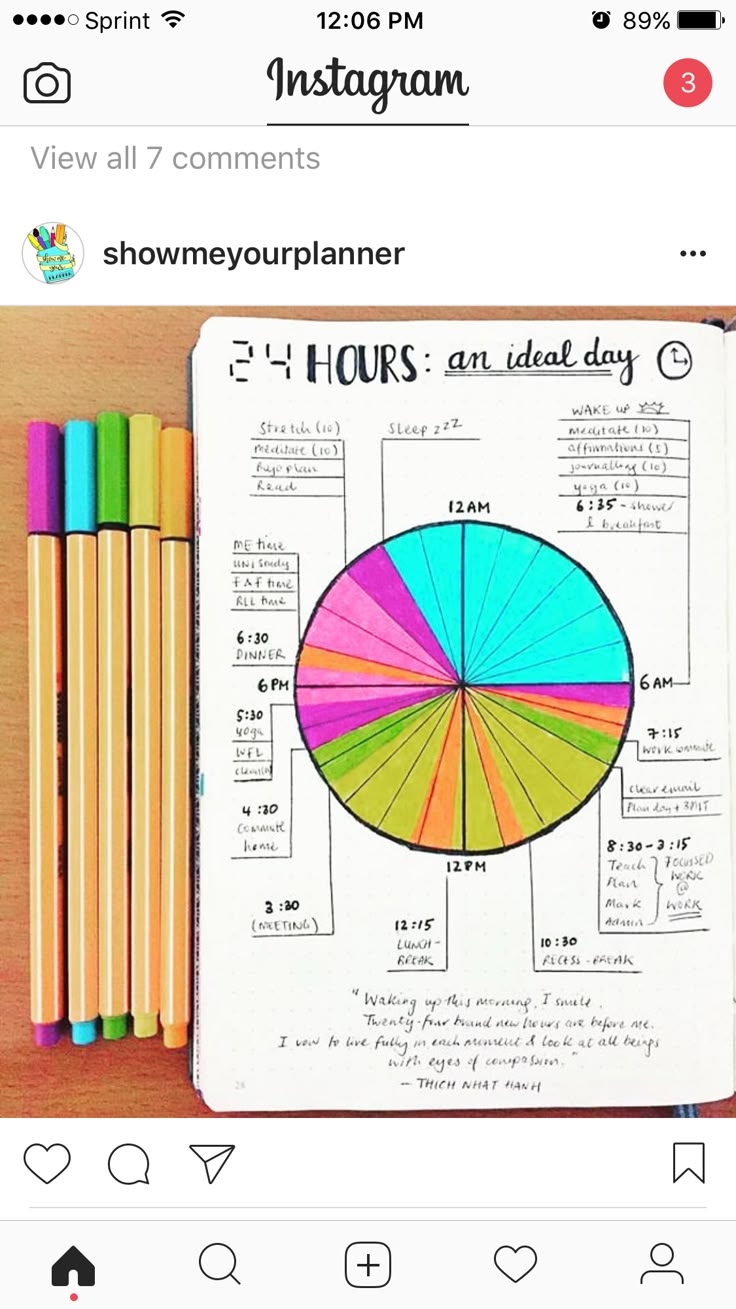 Sprint
12:06 PM
89%
Instagram
3
View all 7 comments
showmeyourplanner
24 HOURS: an ideal day
Stretch (10)
meditate (10)
Bujo plan
Read
Sleep zzz
WAKE UP
meditate (10)
affirmations (5)
journalling (10)
yoga (10)
6:35 - shower
& breakfast
12AM
ME time
UNI study
F&F time
RLL time
6:30
DINNER
6PM
6AM
5:30
yoga
WFL
cleaning
7:15
work commute
clear email
Plan day + 3MIT
4:30
commute
home
8:30-3:15
Teach
Plan
Mark
Admin
FOCUSSED
WORK
@
WORK
12PM
3:30
(MEETING)
12:15
LUNCH-
BREAK
10:30
RECESS-BREAK
"Waking up this morning, I smile.
Twenty-four brand new hours are before me.
I vow to live fully in each moment & look at all beings
with eyes of compassion."
- THICH NHAT HANH
28